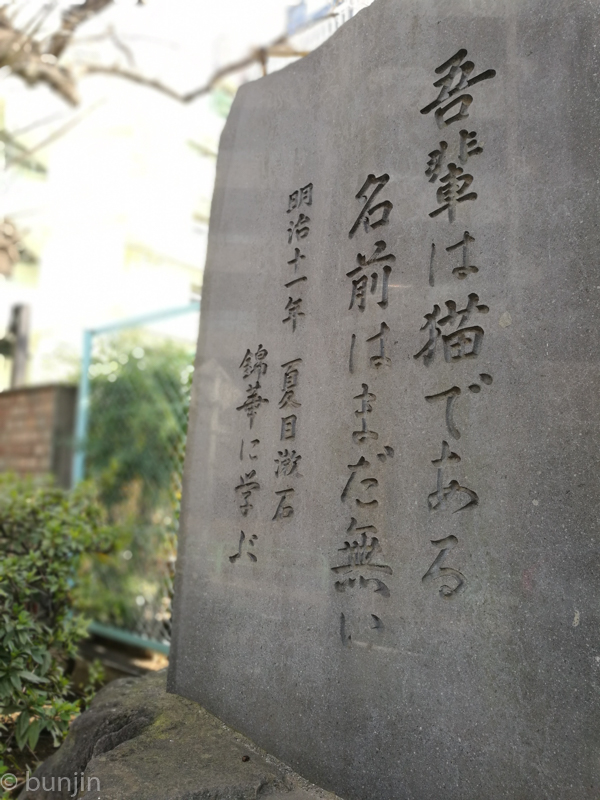 吾輩は猫である
名前はまだ無い
明治十一年 夏目漱石
錦華に学ぶ
© bunjin